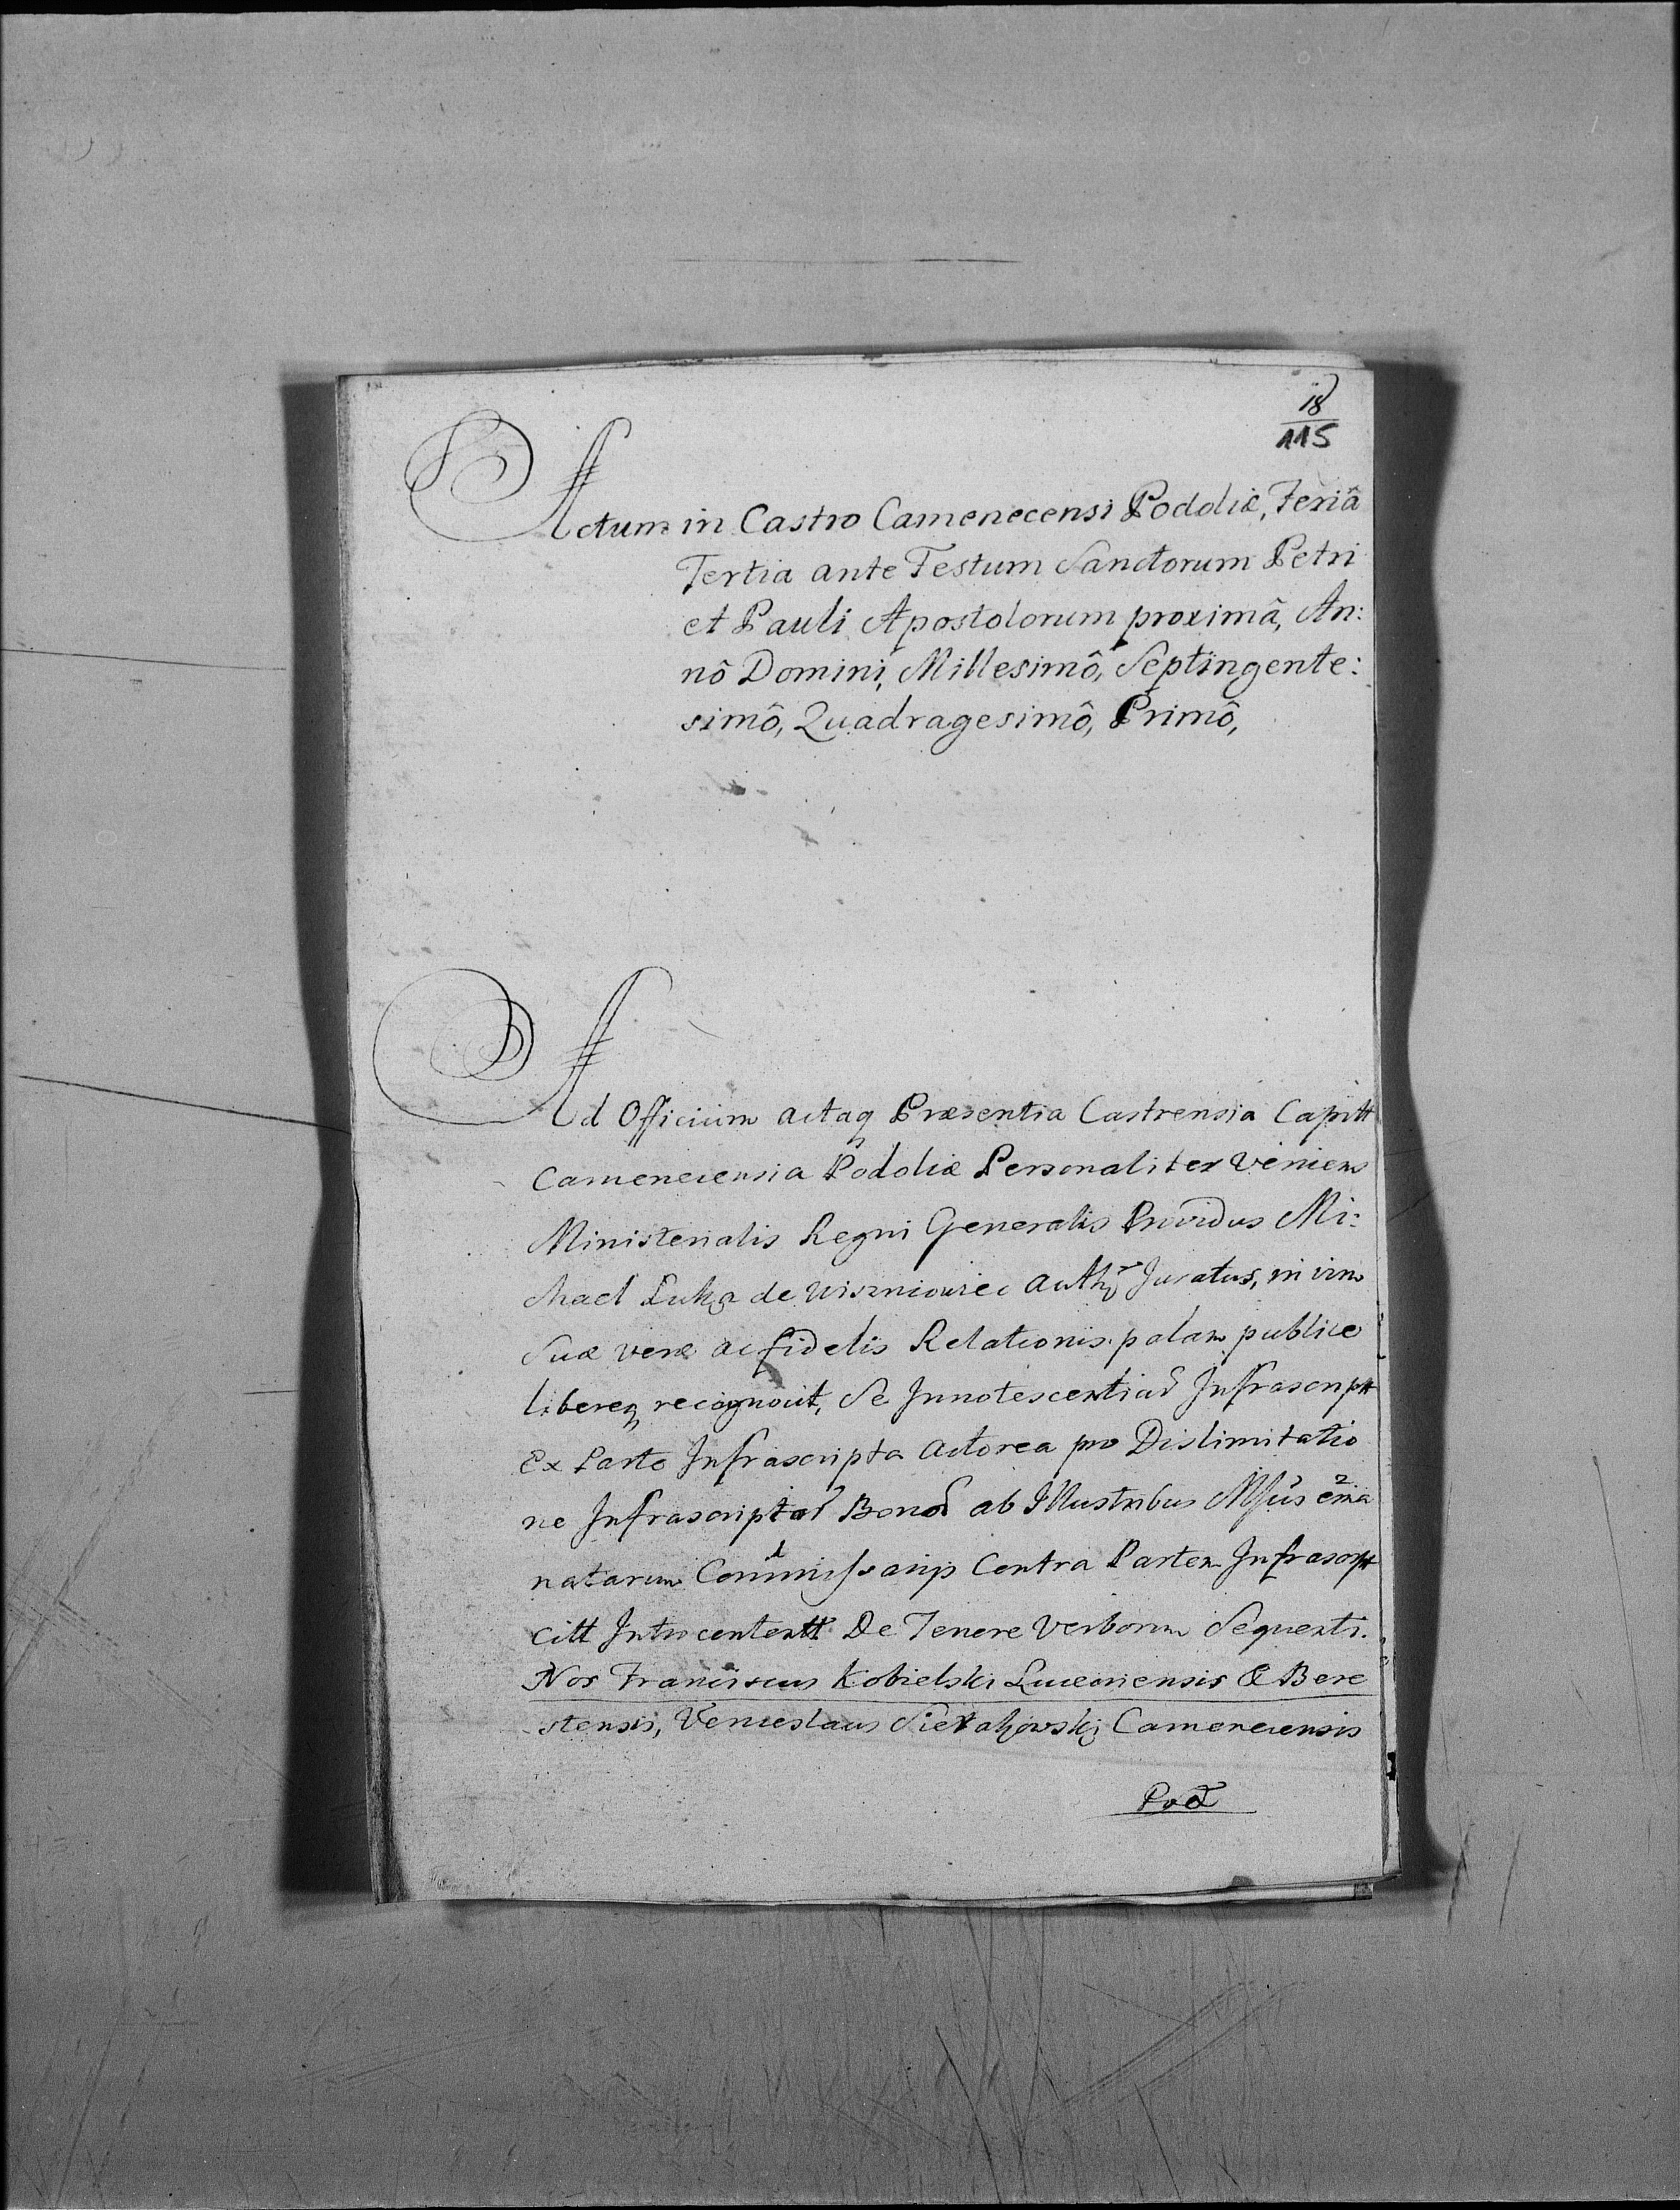 18
115
Actum in Castro Camenecensi Podoliæ, Feriâ
Tertia ante Festum Sanctorum Petri
et Pauli Apostolorum proximâ, An:
nô Domini, Millesimô, Septingente:
simô, Quadragesimô, Primô,
Ad Officium actaq Præsentia Castrensia Capitt
Camenecensia Podoliæ Personaliter Veniens
Ministerialis Regni Generalis Providus Mi:
chael Luka de Wiszniowiec Juratus, in vim
Suæ veræ ac fidelis Relationis palam publice
libereq recognovit, Se Innotescentiar Infrascriptt
Ex Parte Infrascripta Actorea pro Dislimitatio
ne Infrascriptor Bonor ab Illustribus
natarum Commissarijs Contra Partem Infrascrptt
citt Introcentertt De Tenere Verborum Sequenti.
Nos Franciscus Kobielski Luceoriensis & Bere
stensis, Venceslaus Sierakowskj Camenecensis